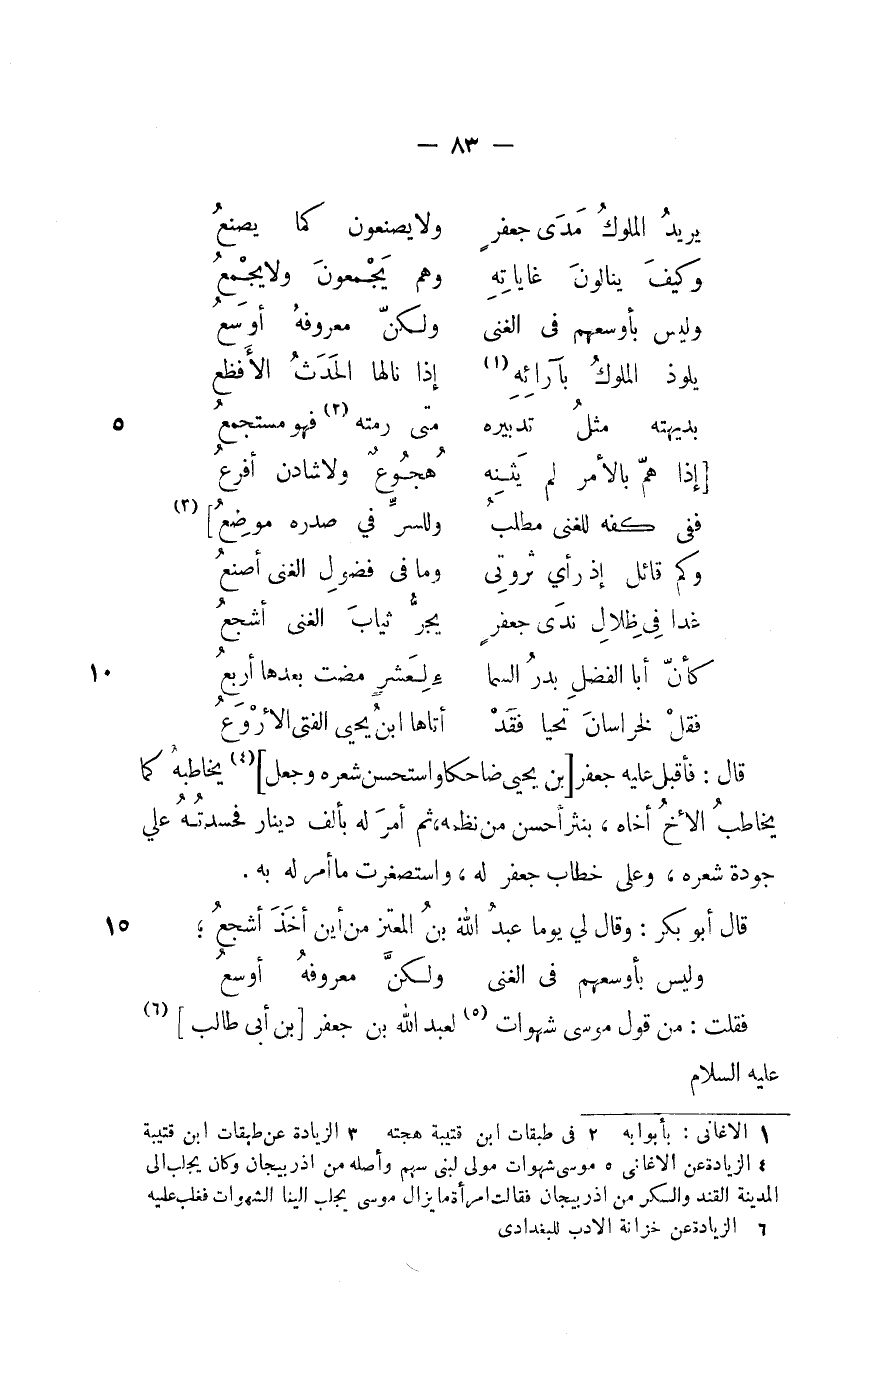 — ٨٣ —
يريدُ الملوكُ مَدَى جعفرٍ ولايصنعون كما يصنعُ
وكيفَ ينالونَ غاياتِهِ وهم يَجْمعونَ ولايجْمعُ
وليس بأوسعهم فى الغنى ولكنّ معروفهُ أوسَعُ
يلوذ الملوكُ بآرائِهِ (١) إذا نالها الحَدَثُ الأَفظعُ
بديهته مثلُ تدبيره متى رمته (٢) فهو مستجمعُ ٥
[إذا همّ بالأمر لم يَثنِه هُجُوعٌ ولاشادن أفرعُ
ففى كفه للغنى مطلبُ وللسرِّ في صدره موضِعُ] (٣)
وكم قائل إذ رأي ثروتِى وما فى فضولِ الغنى أصنعُ
غدا فِى ظلالِ ندَى جعفرٍ يجرُّ ثيابَ الغنى أشجعُ
كأنّ أبا الفضلِ بدرُ السما ءِ لِعَشرٍ مضت بعدها أربعُ ١٠
فقلْ لخراسانَ تحيا فقَدْ أتاها ابنُ يحيى الفتى الأَرْوَعُ
قال : فأقبل عليه جعفر [بن يحيى ضاحكا واستحسن شعره وجعل] (٤) يخاطبهُ كما
يخاطبُ الأخُ أخاه ، بنثر أحسن من نظمه، ثم أمرَ له بألف دينار فحسدتُهُ علي
جودة شعره ، وعلى خطاب جعفر له ، واستصغرت ما أمر له به .
قال أبو بكر : وقال لي يوما عبدُ اللهِ بنُ المعتز من أين أخَذَ أشجعُ ؛ ١٥
وليس بأوسعهم فى الغنى ولكنَّ معروفهُ أوسعُ
فقلت : من قول موسى شهوات (٥) لعبد الله بن جعفر [بن أبى طالب ] (٦)
عليه السلام
١ الاغانى : بأبوابه ٢ فى طبقات ابن قتيبة هجته ٣ الزيادة عن طبقات ابن قتيبة
٤ الزيادة عن الاغانى ٥ موسى شهوات مولى لبنى سهم وأصله من اذربيجان وكان يجلب الى
المدينة القند والسكر من اذربيجان فقالت امرأة ما يزال موسى يجلب الينا الشهوات فغلب عليه
٦ الزيادة عن خزانة الادب للبغدادى